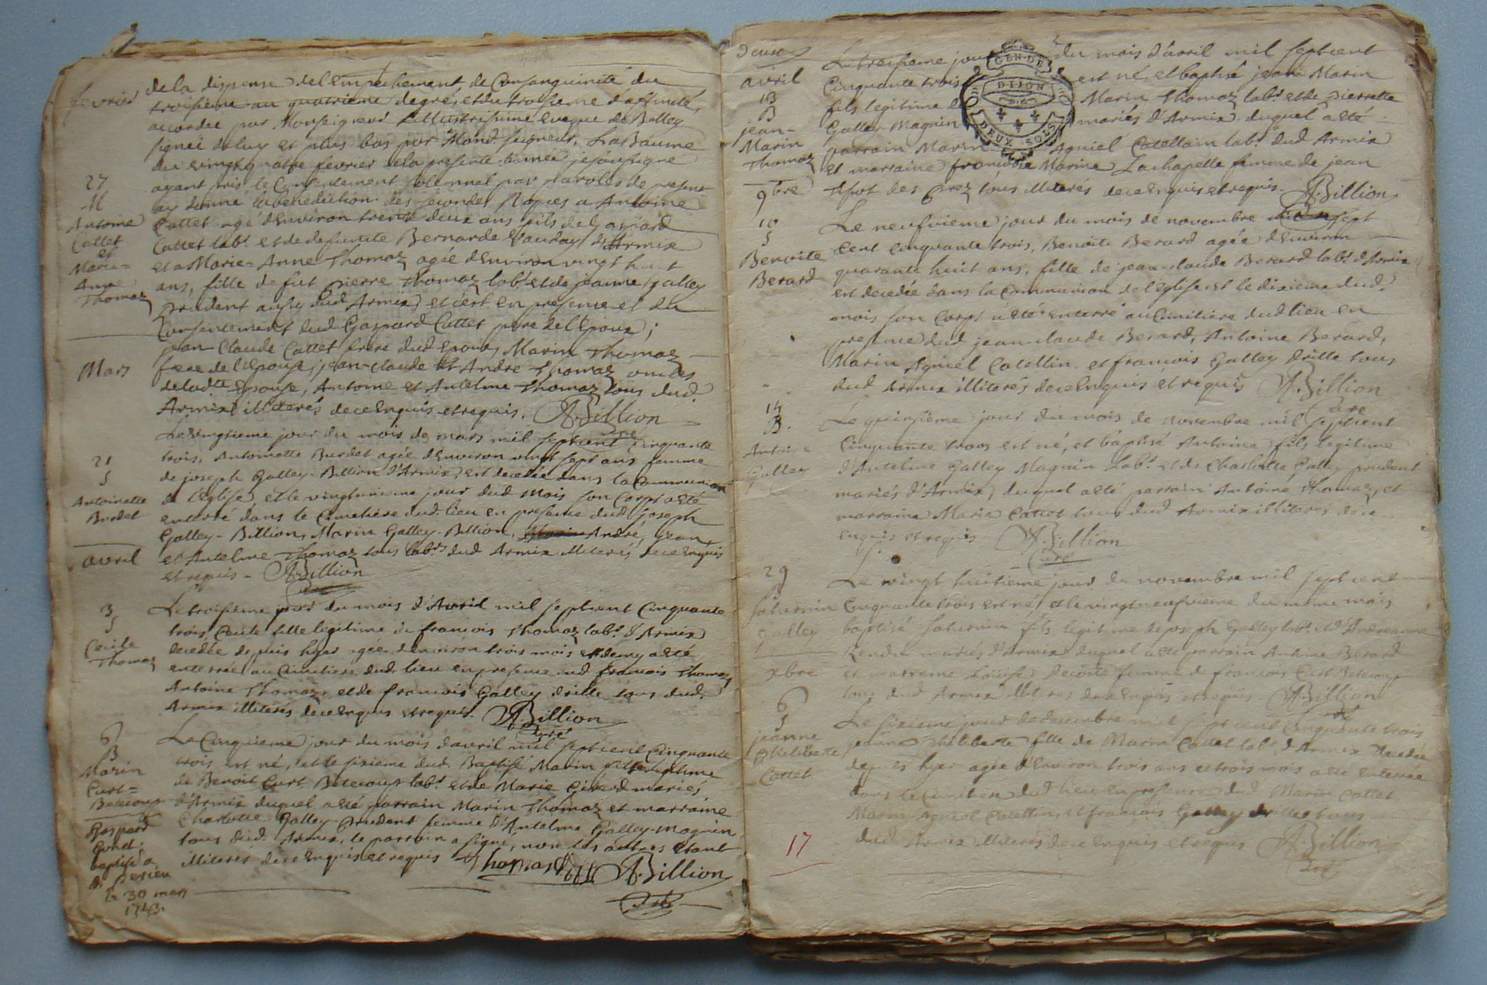 fevrier
de la dispense de l'empechement de Consanguinité du
troisieme au quatrieme degrés et du troisieme d'affinité,
accordée par Monseigneur L'Illustrissime Eveque de Belley
signée de luy et plus bas par Mond. seigneur, La Baume
du vingt quatre fevrier de la presente année je soussigné
27
M
Antoine
Cattet
et
Marie-
Anne
Thomaz
ayant pris le Consentement solemnel par paroles de present
ay donné la benediction des secondes Noces a Antoine
Cattet agé d'Environ trente deux ans fils de Gaspard
Cattet lab.r et de defunte Bernarde Vauday d'Armix
et a Marie-Anne Thomaz agée d'Environ vingt huit
ans, fille de fut Pierre Thomaz lab.r et de jeanne Galley
Prudent aussy dud Armix, et c'est en presence et du
Consentement dud Gaspard Cattet pere de l'Epoux;
jean Claude Cattet frere dud Epoux, Marin Thomaz
Mars
frere de l'Epouse, jean-Claude et André Thomaz oncles
de ladte Epouse, Antoine et Antelme Thomaz tous dud
Armix illiterés de ce Enquis et requis. A. Billion
cure
Le vingtieme jour du mois de mars mil sept cent cinquante
21
S
Antoinette
Burdet
trois, Antoinette Burdet agée d'Environ vingt sept ans femme
de joseph Galley-Billion d'Armix, est decedée dans la Communion
de l'Eglise, et le vingtunieme jour dud Mois son Corps a eté
enterré dans le Cimetiere dud lieu en presence dud joseph
Galley-Billion, Marin Galley-Billion, André, jean,
avril
et Antelme Thomaz tous lab.rs dud Armix illiterés de ce Enquis
et requis - A. Billion
3
S
Cecile
Thomaz
Le troisieme jour du mois d'Avril mil sept cent Cinquante
trois, Cecile fille legitime de francois Thomaz lab.r d'Armix
decedée depuis hyer agée d'environ trois mois et demy a eté
enterrée au Cimetiere dud lieu en presence dud francois Thomaz
Antoine Thomaz, et de francois Galley drille tous dud.
Armix illiterés de ce Enquis et requis. A. Billion
curé
6
B
Marin
Curt-
Beteoup
Le Cinquieme jour du mois d'avril mil sept cent Cinquante
trois est né, et le sixieme dud Baptisé Marin fils legitime
de Benoit Curt lab.r et de Marie Girerd mariés
d'Armix duquel a eté parrain Marin Thomaz et marraine
Charlotte Galley-Prudent femme d'Antelme Galley-Magnin
tous dud. Armix, le parrain a signé, non les autres Etant
illiterés de ce Enquis et requis Thomas A. Billion
curé
Gaspard
baptisé a
le 30 mars
1743.
deux
avril
13
B
jean-
Marin
Thomaz
Le treisieme jour du mois d'avril mil sept cent
Cinquante trois est né, et baptisé jean Marin
fils legitime Marin Thomaz lab.r et de Pierrette
Galley Magnin mariés d'Armix duquel a eté
parrain Marin Agniel Catellain lab.r dud Armix
et marraine francoise Marine Lachapelle femme de jean
tous illiterés de ce Enquis et requis. A. Billion
GEN. DE DIJON
DEUX SOLS
9bre
10
S
Benoite
Berard
Le neufvieme jour du mois de novembre mil sept
cent cinquante trois, Benoite Berard agée d'Environ
quarante huit ans, fille de jean-claude Berard lab.r d'Armix
est decedée dans la Communion de l'Eglise et le dixieme dud.
mois son Corps a eté enterré au Cimetiere dud lieu en
presence dud jean-claude Berard, Antoine Berard,
Marin Agniel Catellin et francois Galley drille tous
dud Armix illiterés de ce Enquis et requis A. Billion
cure
14
B.
Antoine
Galley
Le quinsieme jour du mois de novembre mil sept cent
Cinquante trois est né, et baptisé Antoine fils legitime
d'Antelme Galley Magnin Lab.r et de Charlotte Galley prudent
mariés d'Armix, duquel a eté parrain Antoine Thomaz, et
marraine Marie Cattet tous dud Armix illiterés de ce
enquis et requis A. Billion
Curé
29
Saturnin
Galley
Le vingt huitieme jour de novembre mil sept cent
Cinquante trois est né, et le vingt neufvieme du meme mois
baptisé Saturnin fils legitime de joseph Galley lab.r et d'Andreanne
mariés d'Armix duquel a eté parrain Antoine Berard
xbre
et marraine femme de francois Curt Beteoup
tous dud Armix illiterés de ce enquis et requis A. Billion
6
S
jeanne
Philiberte
Cattet
Le sixieme jour de decembre mil sept cent Cinquante trois
jeanne Philiberte fille de Marin Cattet lab.r d'Armix decedée
depuis hyer agée d'Environ trois ans et trois mois a eté enterrée
dans le Cimetiere dud lieu en presence dud Marin Cattet
Marin Agniel Catellin, et francois Galley drille tous
dud Armix illiterés de ce enquis et requis A. Billion
curé
17